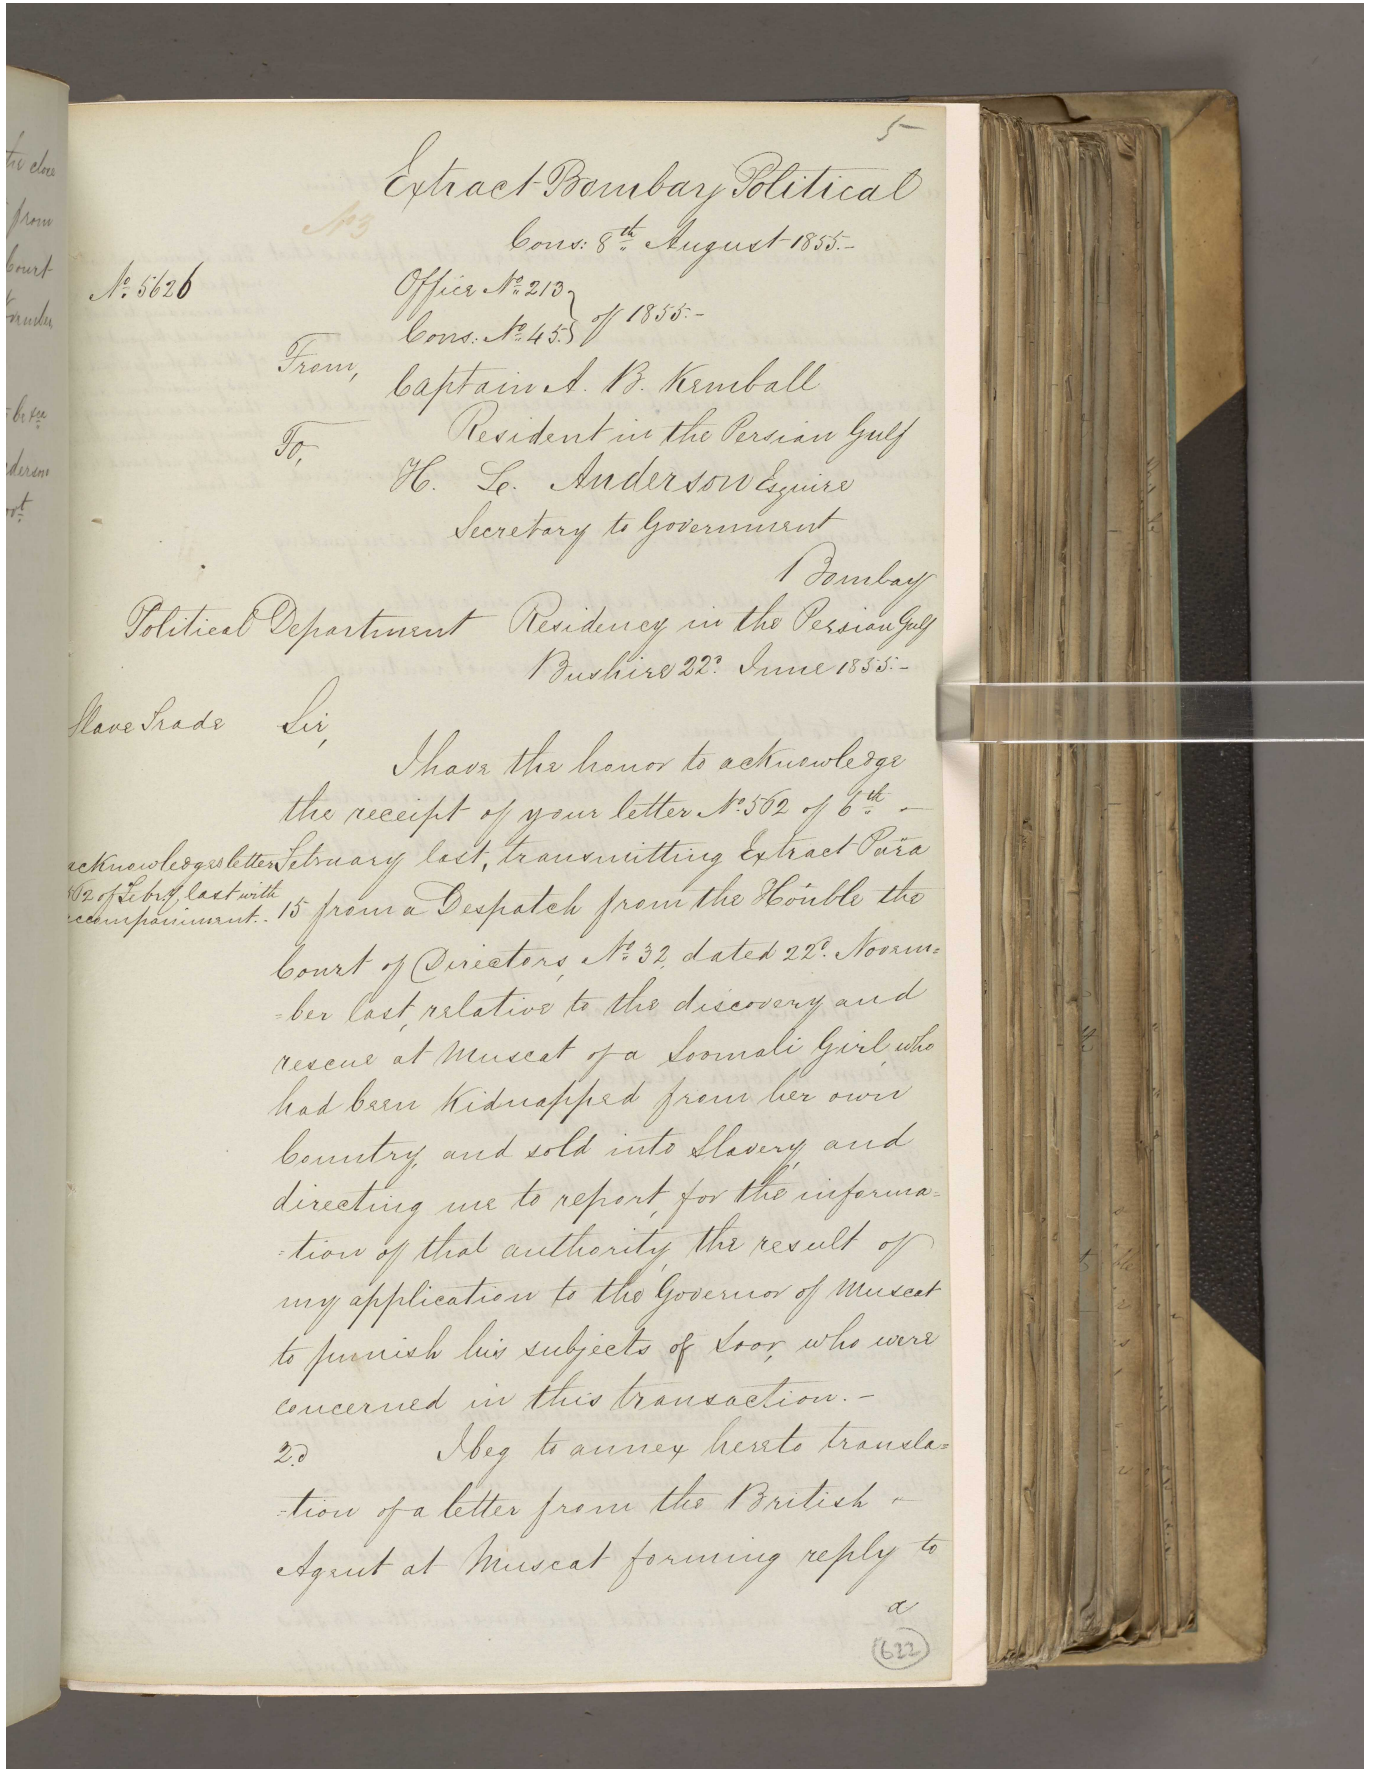 5
Extract Bombay Political
Cons: 8th August 1855.-
No 3
No. 5626
Office No. 213
Cons: No. 45 of 1855.-
From,
Captain A. B. Kemball
Resident in the Persian Gulf
To,
H. L. Anderson Esquire
Secretary to Government
Bombay
Political Department Residency in the Persian Gulf
Bushire 22d. June 1855.-
Slave Trade
Sir,
I have the honor to acknowledge
the receipt of your letter No. 562 of 6th -
acknowledges letter
562 of Febry. last with
accompaniment.-
February last, transmitting Extract Para
15 from a Despatch from the Honble the
Court of Directors, No. 32, dated 22d. Novem=
=ber last, relative to the discovery and
rescue at Muscat of a Soomali Girl, who
had been Kidnapped from her own
Country, and sold into Slavery, and
directing me to report, for the informa=
=tion of that authority, the result of
my application to the Governor of Muscat
to punish his subjects of Soor, who were
concerned in this transaction.-
2d I beg to annex hereto transla=
=tion of a letter from the British -
Agent at Muscat forming reply to
a
622
the close
from
Court
derson